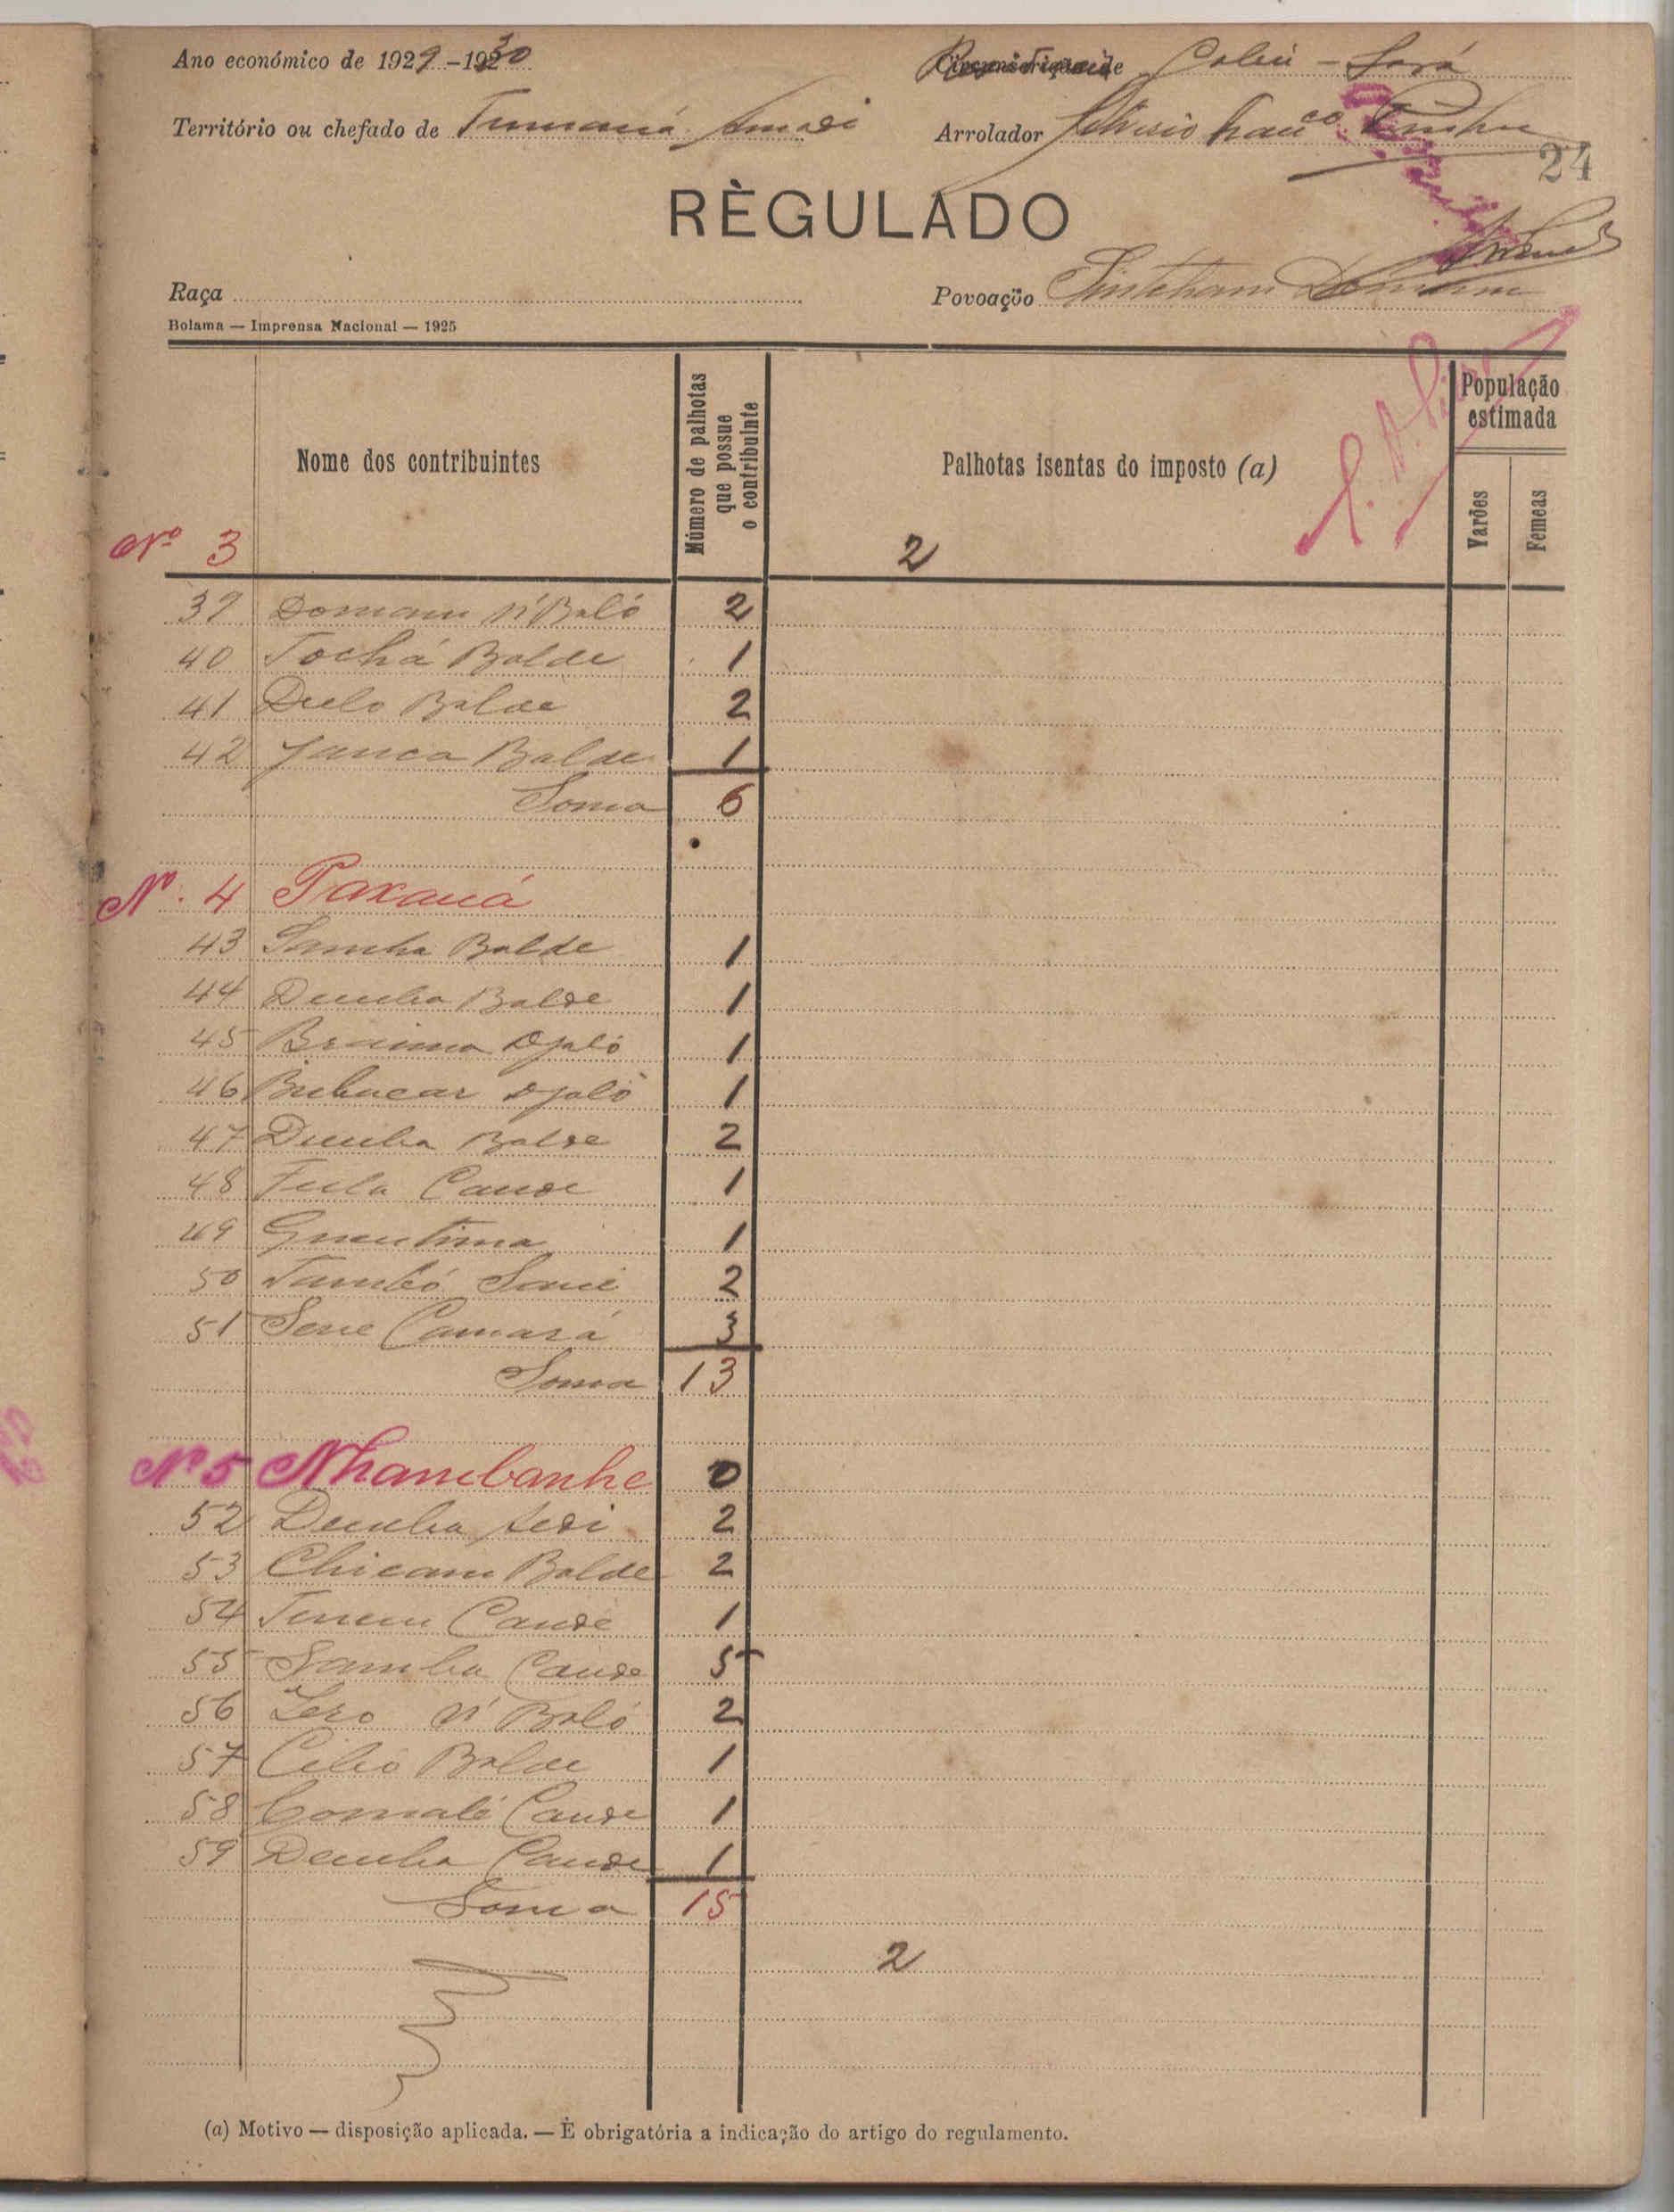 Ano económico de 1929-1930
Coliü - Sará
Território ou chefado de Tumaná
Arrolador
24
RÈGULADO
Raça
Povoação
Bolama — Imprensa Nacional — 1925
Nome dos contribuintes
Número de palhotas que possue o contribuinte
Palhotas isentas do imposto (a)
População estimada
Varões
Femeas
Nº 3
2
39 Domani N'Baló 2
40 Tochá Balde 1
41 Duelo Balde 2
42 Janca Balde 1
Soma 6
Nº. 4 Paxaná
43 Samba Balde 1
44 Demba Balde 1
45 Braima Djaló 1
46 Bubacar Djaló 1
47 Demba Balde 2
48 Fula Cande 1
49 1
50 Tumbó Sané 2
51 Sene Camará 3
Soma 13
Nº 5 Nhambanhe 0
52 Demba Sedi 2
53 Chicam Balde 2
54 Cande 1
55 Samba Cande 5
56 Iero N'Baló 2
57 Cilió Balde 1
58 Comalé Cande 1
59 Demba Cande 1
Soma 15
2
(a) Motivo — disposição aplicada. — È obrigatória a indicação do artigo do regulamento.